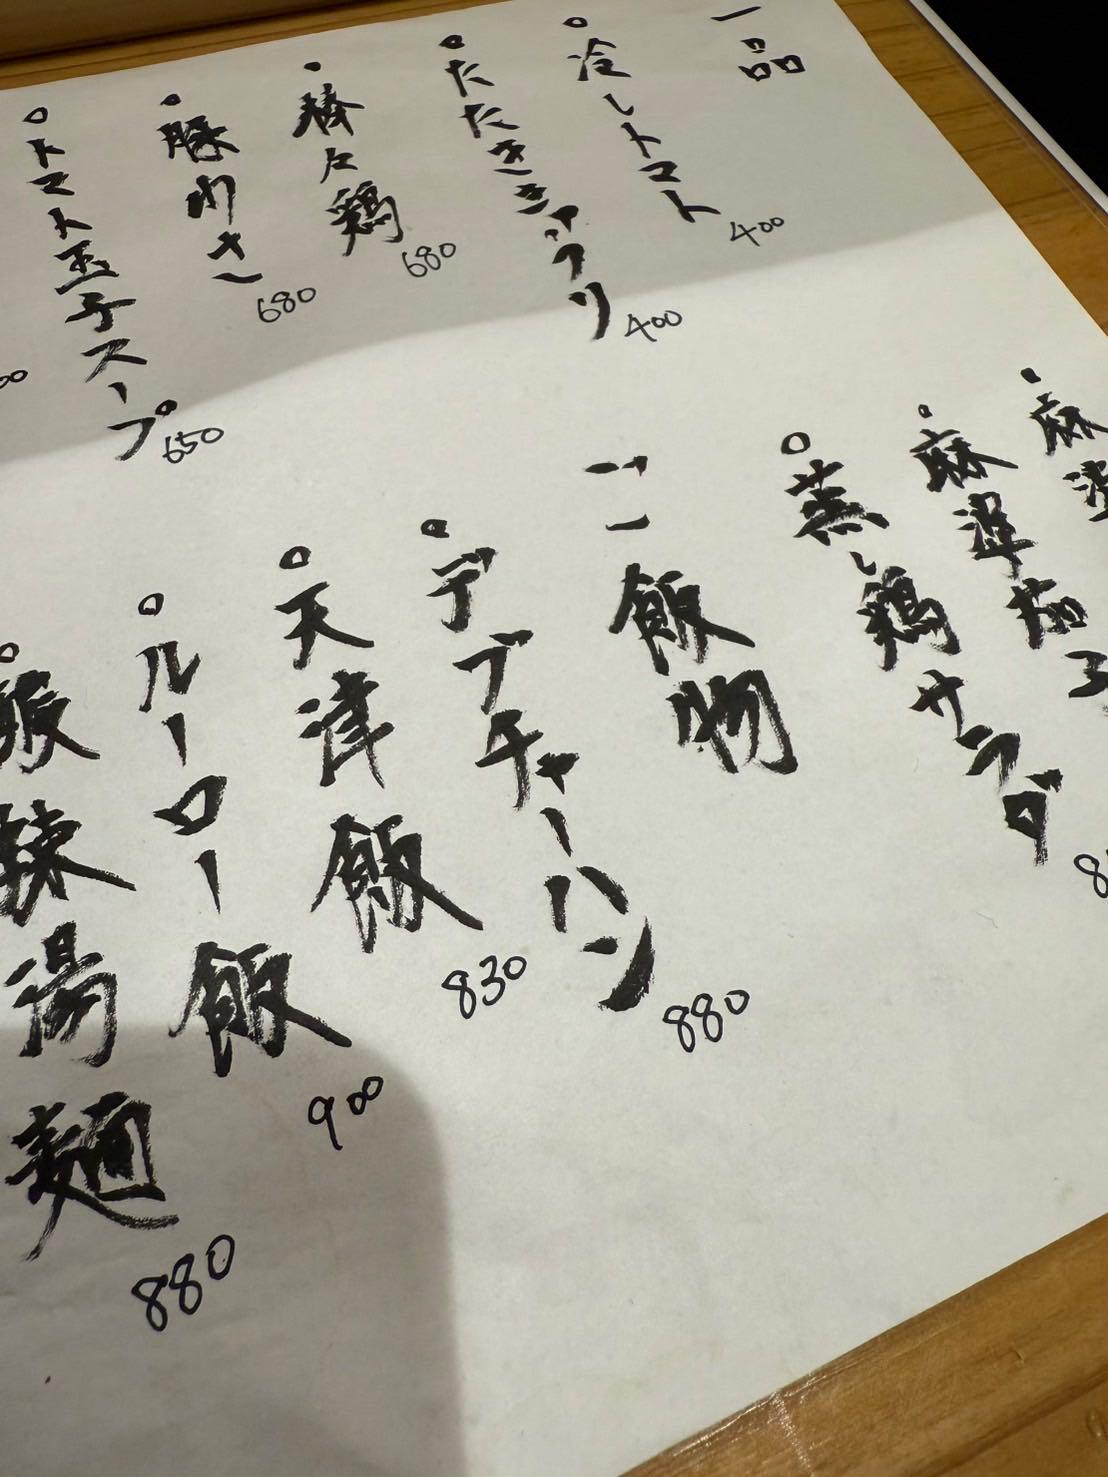 一品
冷しトマト 400
たたきキュウリ 400
棒々鶏 680
豚 680
トマト玉子スープ 650
00
麻婆
麻婆茄子
蒸し鶏サラダ 8
ご飯物
デブチャーハン 880
天津飯 830
ルーロー飯 900
酸辣湯麺 880